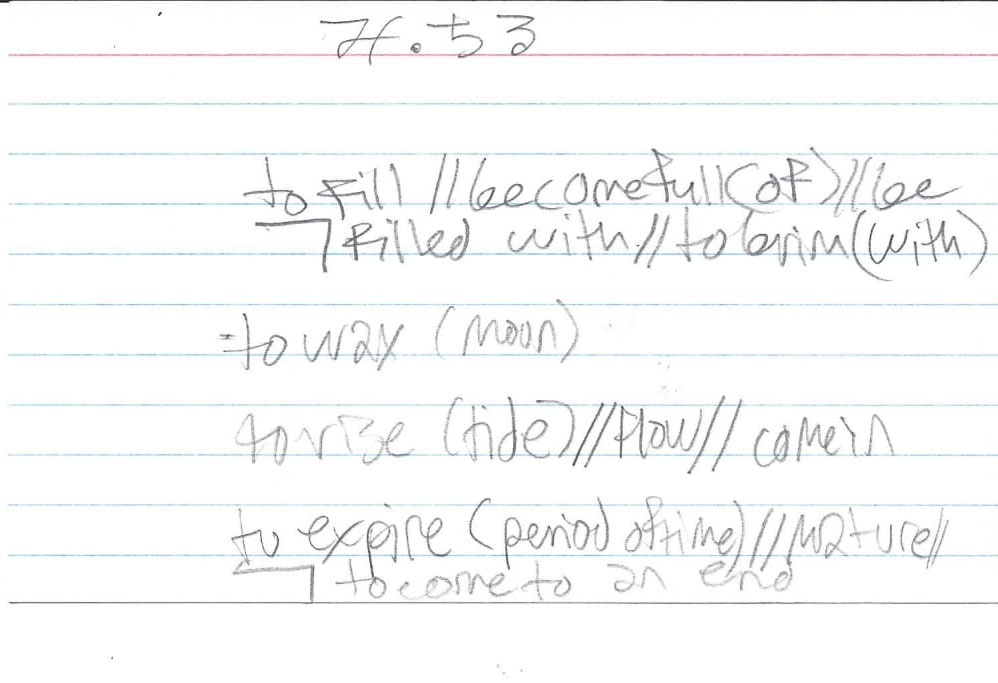 み.ちる
to fill // become full (of) // be
filled with // to brim (with)
to wax (moon)
to rise (tide) // flow // come in
to expire (period of time) // mature //
to come to an end